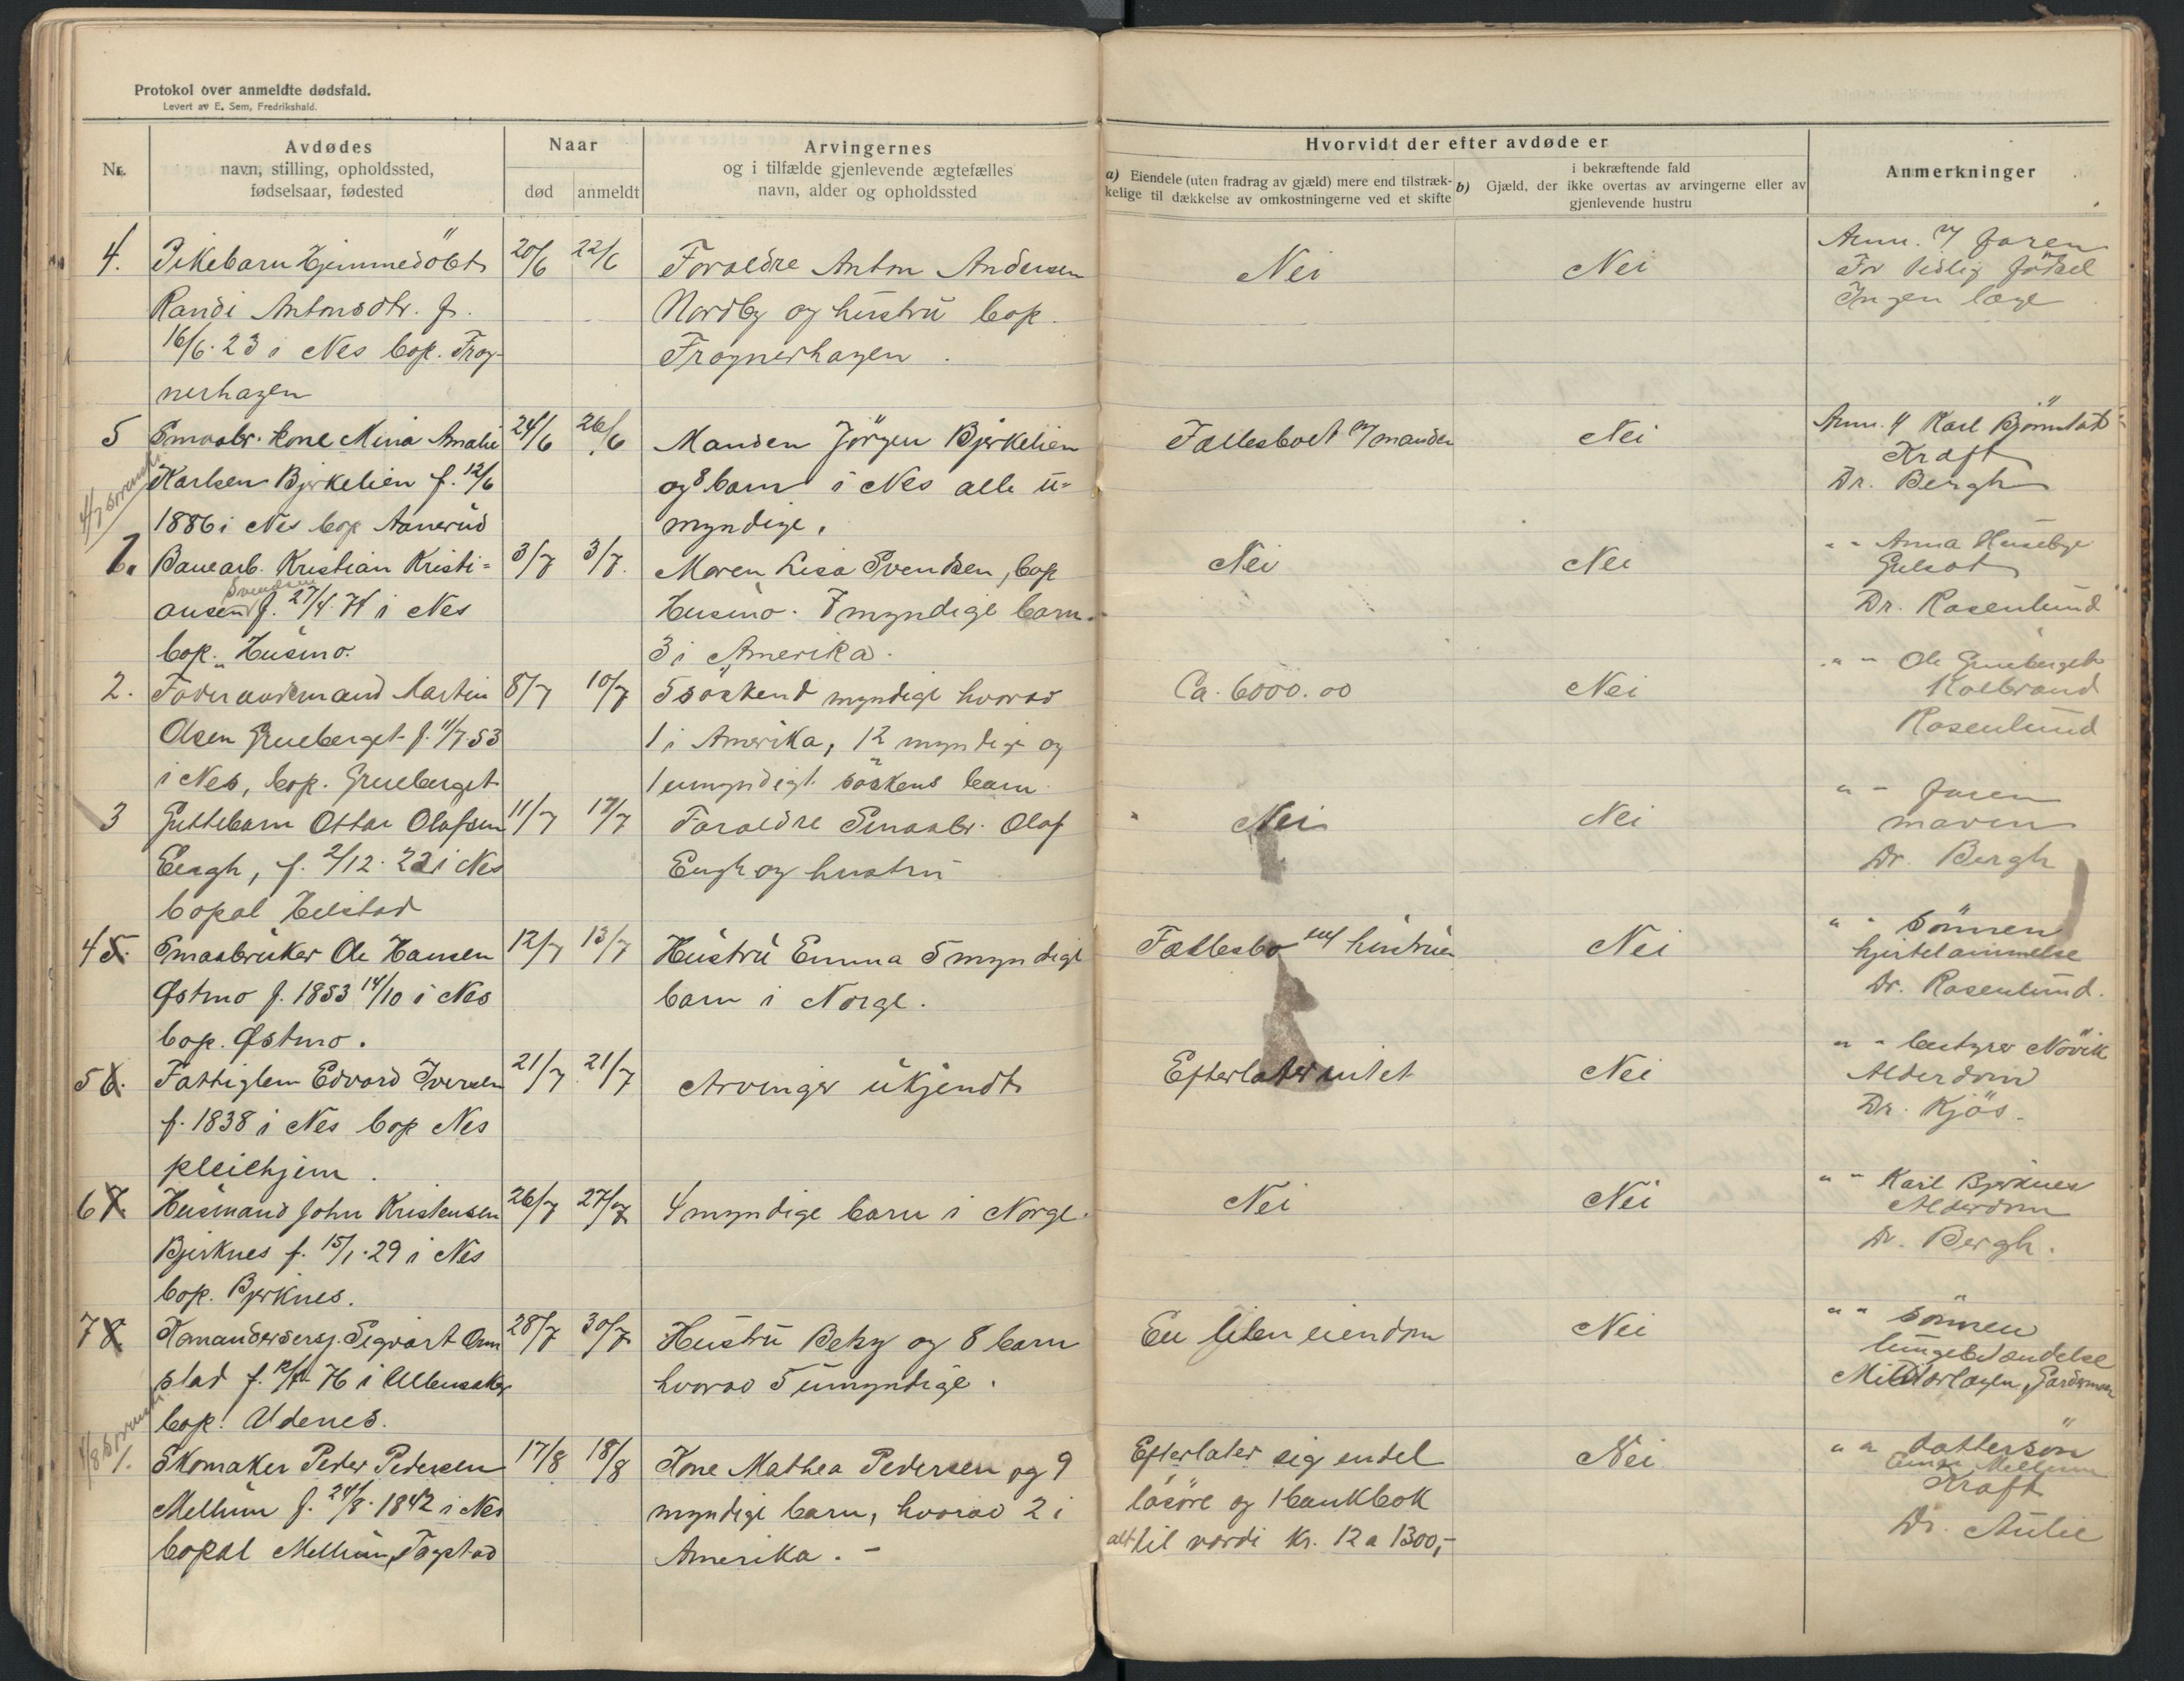 Protokol over anmeldte dødsfald.
Levert av E. Sem, Fredrikshald.
Nr.
Avdødes
navn, stilling, opholdssted,
fødselsaar, fødested
Naar
død
anmeldt
Arvingernes
og i tilfælde gjenlevende ægtefælles
navn, alder og opholdssted
Hvorvidt der efter avdøde er
a) Eiendele (uten fradrag av gjæld) mere end tilstræk-
kelige til dækkelse av omkostningerne ved et skifte
i bekræftende fald
b) Gjæld, der ikke overtas av arvingerne eller av
gjenlevende hustru
Anmerkninger
4. Pikebarn Hjemmedöbt 20/6 22/6 Foraldre Anton Andersen Nei Nei Anm. v/ faren
Randi Antonsdtr. f. Nordby og hustru bop. For tidlig födsel
16/6.23 i Nes bop. Frog- Frognerhagen. Ingen læge
nerhagen
5 Smaabr. kone Mina Amalie 24/6 26/6 Manden Jörgen Bjerkelien Fællesboet m/manden Nei Anm. v/ Karl Björnstad
Karlsen Bjerkelien f. 12/6 og 8 barn i Nes alle u- Kraft
1886 i Nes bop Aanerud myndige. Dr. Bergh
1. Banearb. Kristian Kristi- 3/7 3/7. Maren Lisa Svendsen, bop Nei Nei " " Anna Husebye
ansen Svendsen f. 27/4.71 i Nes Husmo. 7 myndige barn. Gulsot
bop. Husmo. 3 i Amerika. Dr. Rosenlund
2. Föderaadsmand Martin 8/7 10/7 5 söskend myndige hvorav Ca. 6000.00 Nei " " Ole Grueberget
Olsen Grueberget f. 11/7.53 1 i Amerika, 12 myndige og Kolbrand
i Nes, bop. Grueberget 1 umyndigt söskens barn. Rosenlund
3 Guttebarn Ottar Olafsen 11/7 12/7 Foraldre Smaabr. Olaf Nei Nei " " faren
Engh, f. 2/12.22 i Nes Engh og hustru maven
bopal Heistad Dr. Bergh
45. Smaabruker Ole Hansen 12/7 13/7 Hustru Emma 5 myndige Fællesbo m/ hustruen Nei " " Sönnen
Østmo f. 1853 14/10 i Nes barn i Norge. hjertelammelse
bop. Østmo. Dr. Rosenlund.
56. Fattiglem Edvard Iversen 21/7 21/7 Arvinger ukjendt Efterlater intet Nei " " bestyrer Növik
f. 1838 i Nes bop Nes Alderdom
pleiehjem. Dr. Kjös.
67. Husmand John Kristensen 26/7 27/7 4 myndige barn i Norge. Nei Nei " " Karl Bjerknes
Bjerknes f. 15/1.29 i Nes Alderdom
bop. Bjerknes. Dr. Bergh.
78. Komandersersj. Sigvart Orm 28/7 30/7 Hustru Betzy og 8 barn En liten eiendom Nei " " Sönnen
stad f. 76 i Ullensaker hvorav 5 umyndige. lungebetændelse
bop. Udenes. Militærlægen, Gardermoen
1. Skomaker Peder Pedersen 17/8 18/8 Kone Mathea Pedersen og 9 Efterlater sig endel Nei " " dattersön
Mellum f. 24/8.1842 i Nes myndige barn, hvorav 2 i lösöre og 1 bankbok Einar Mellum
bopal Mellum, Fogstad Amerika. - alt til værdi kr. 12 a 1300,- Kraft
Dr. Aulie